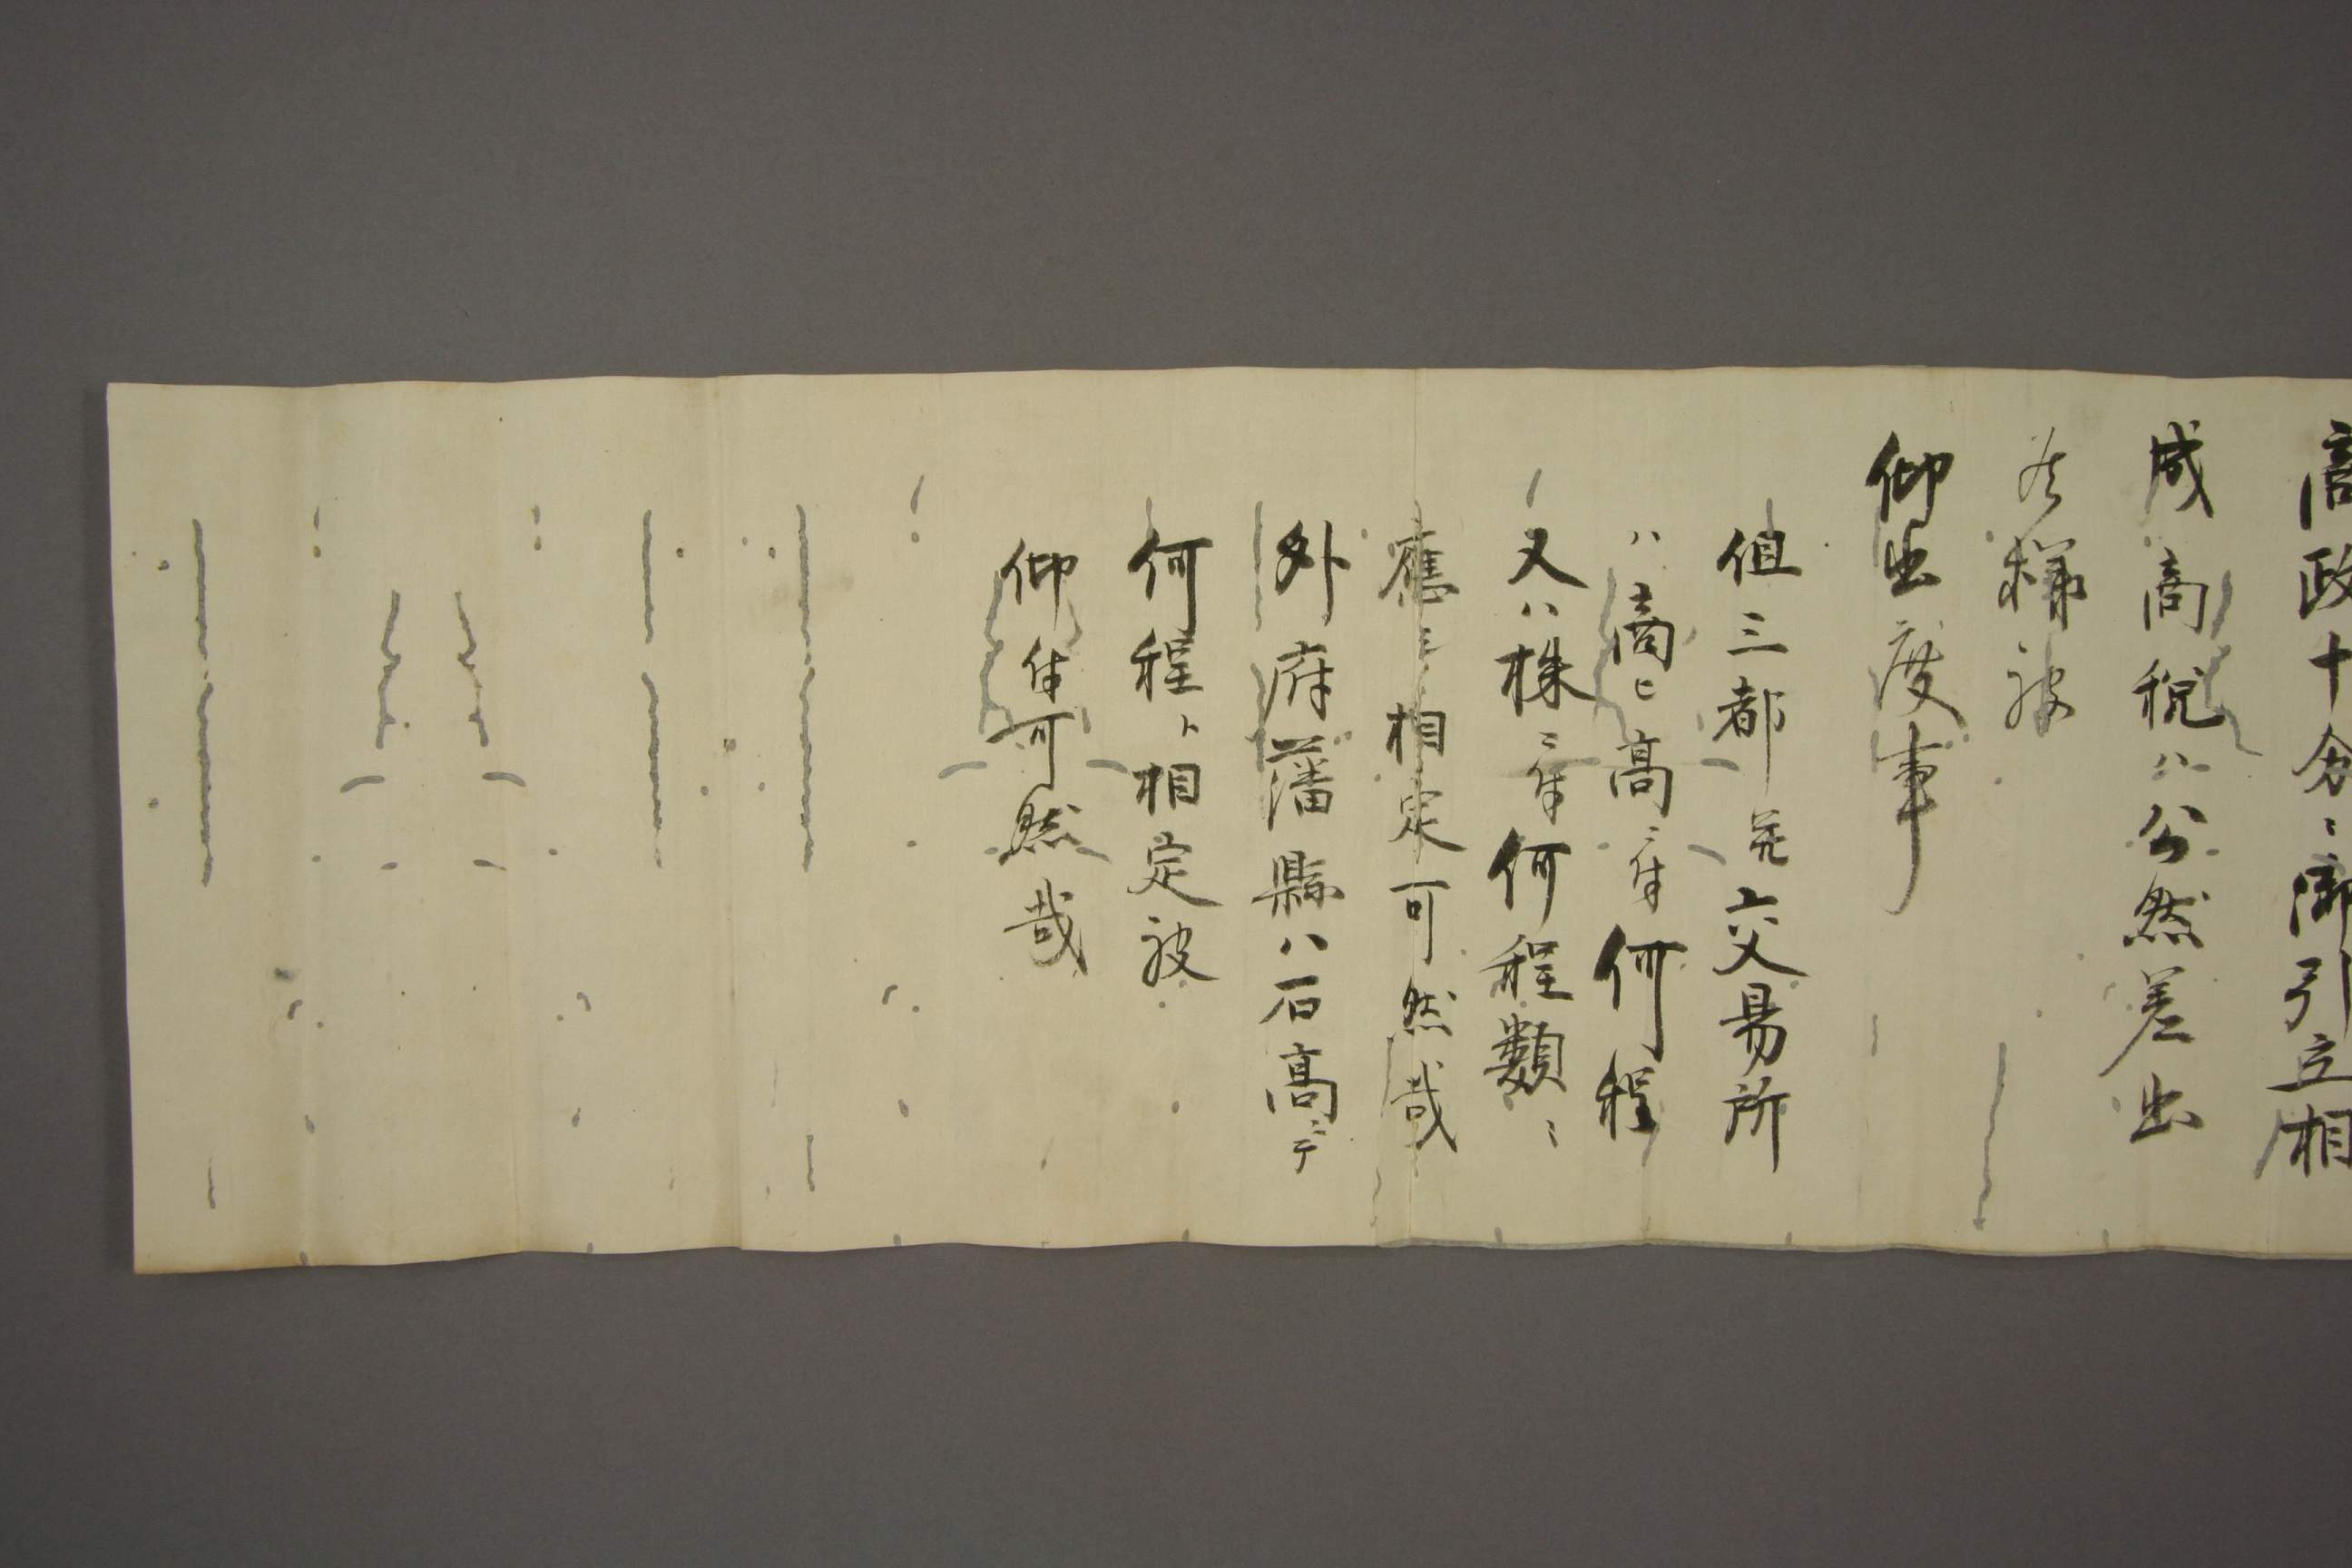 商政十分ニ御引立相
成商税ハ公然差出
候様被
仰出度事
但三都並交易所
ハ商ヒ高ニ付何程
又ハ株ニ付何程数ニ
應シ相定可然哉
外府藩縣ハ石高ニテ
何程ト相定被
仰付可然哉